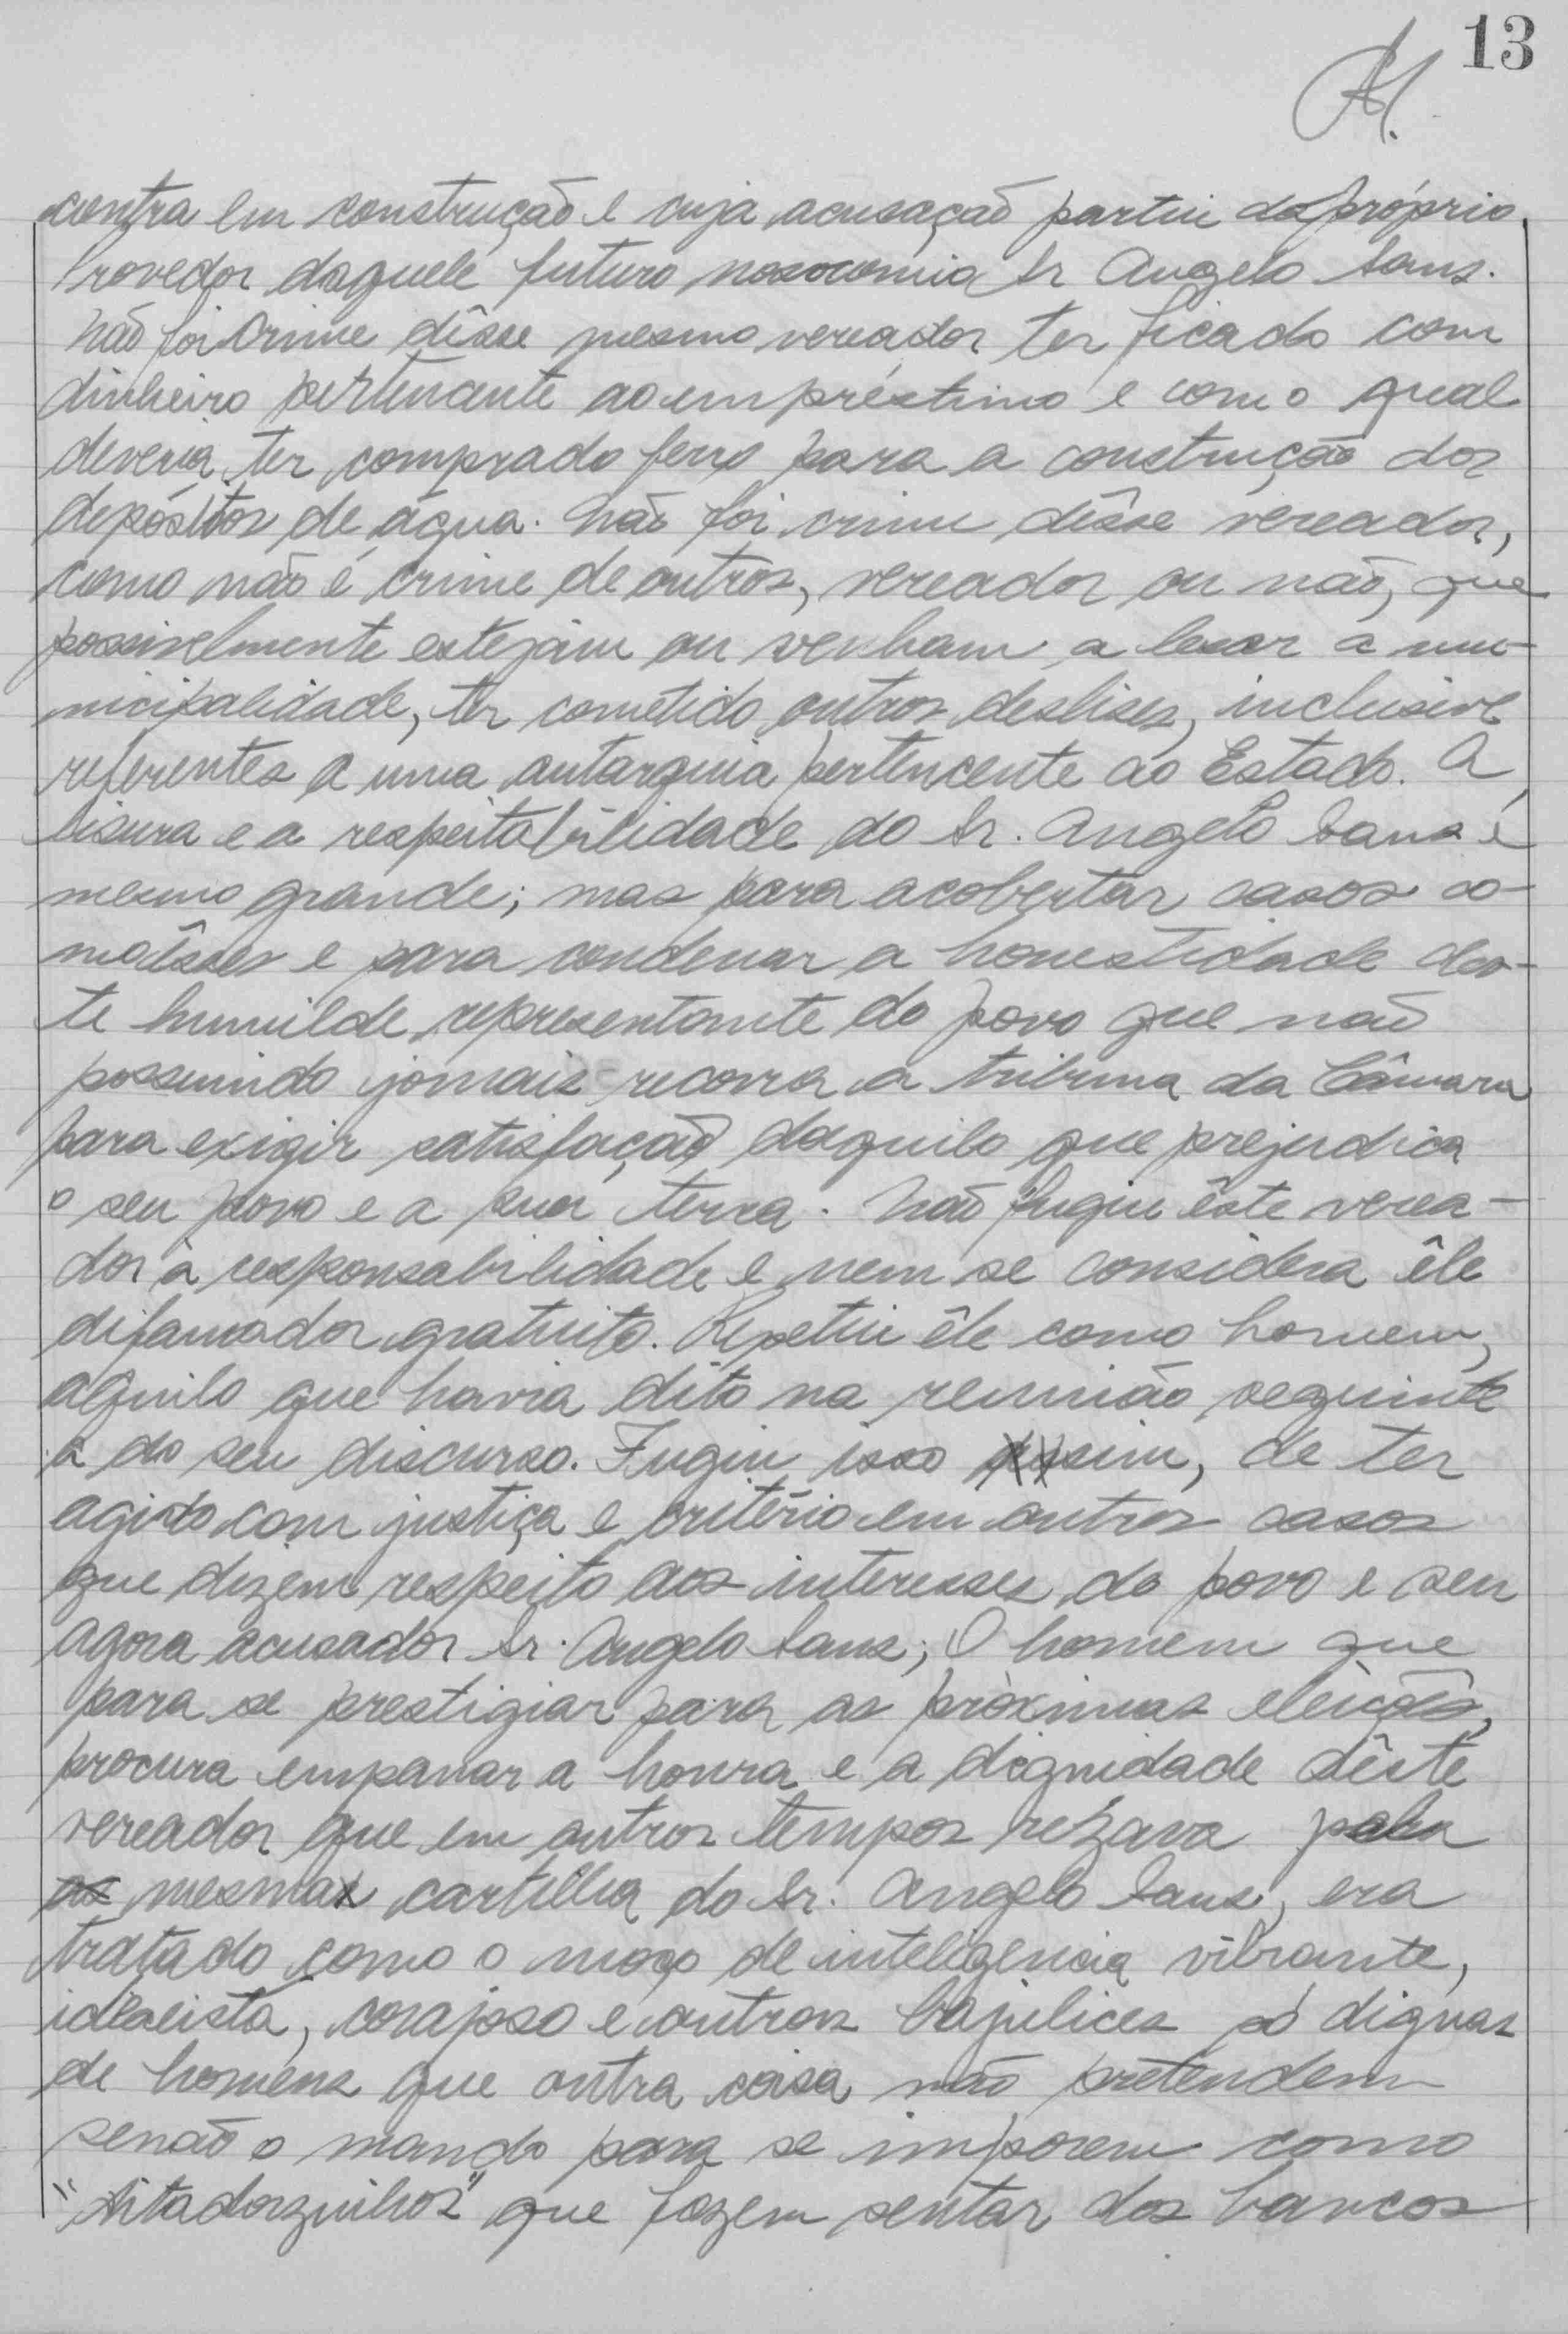 13
contra em construção e cuja acusação partiu do próprio
Provedor daquele futuro nosocomio Sr Angelo Sans.
Não foi crime dêsse mesmo vereador ter ficado com
dinheiro pertencente ao empréstimo e com o qual
deveria ter comprado ferro para a construção dos
depósitos de água. Não foi crime dêsse vereador,
como não é crime de outros, vereador ou não, que
possivelmente estejam ou venham a lesar a mu-
nicipalidade, ter cometido outros deslises, inclusive
referentes a uma autarquia pertencente ao Estado. A
lisura e a respeitabilidade do Sr. Angelo Sans é
mesmo grande; mas para acobertar casos co-
mo êsses e para condenar a honestidade dês-
te humilde representante do povo que não
possuindo jornais recorra a tribuna da Câmara
para exigir satisfação daquilo que prejudica
o seu povo e a sua terra. Não fugiu êste verea-
dor à responsabilidade e nem se considera êle
difamador gratuito. Repetiu êle como homem,
aquilo que havia dito na reunião seguinte
a do seu discurso. Fugiu isso sim, de ter
agido com justiça e critério em outros casos
que dizem respeito aos interesses do povo e seu
agora acusador Sr. Angelo Sans; O homem que
para se prestigiar para as próximas eleições,
procura empanar a honra e a dignidade dêste
vereador que em outros tempos rezava pela
mesma cartilha do Sr. Angelo Sans, era
tratado como o moço de inteligencia vibrante,
idealista, corajoso e outras bajulices só dignas
de homens que outra coisa não pretendem
senão o mando para se imporem como
"ditadorzinhos" que fazem sentar dos bancos